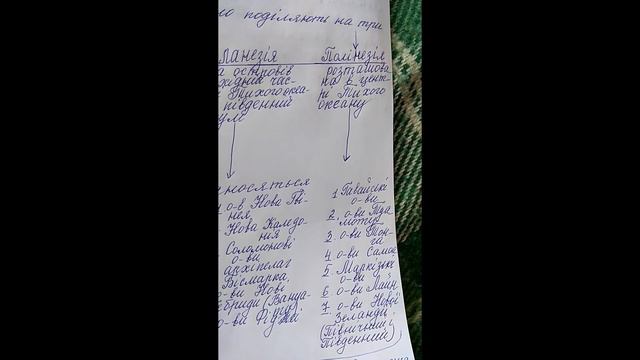 но поділяють на три
ланезія
а островів
хідній час-
Тихого океа-
південний
Полінезія
розташова
на в цент-
рі Тихого
океану
носяться
о-в Нова Гві-
нея
Нова Каледо-
нія
Соломонові
о-ви
архіпелаг
Бісмарка,
о-ви Нові
ебриди (Вануа-
о-ви Фіджі
1 Гавайські
о-ви
2. о-ви Туа
моту
3. о-ви Тон-
га
4 о-ви Самоа
5. Маркізькі
о-ви
6 о-ви Лайн
7 о-ви Нової
Зеланді
(Північний і
Південний)